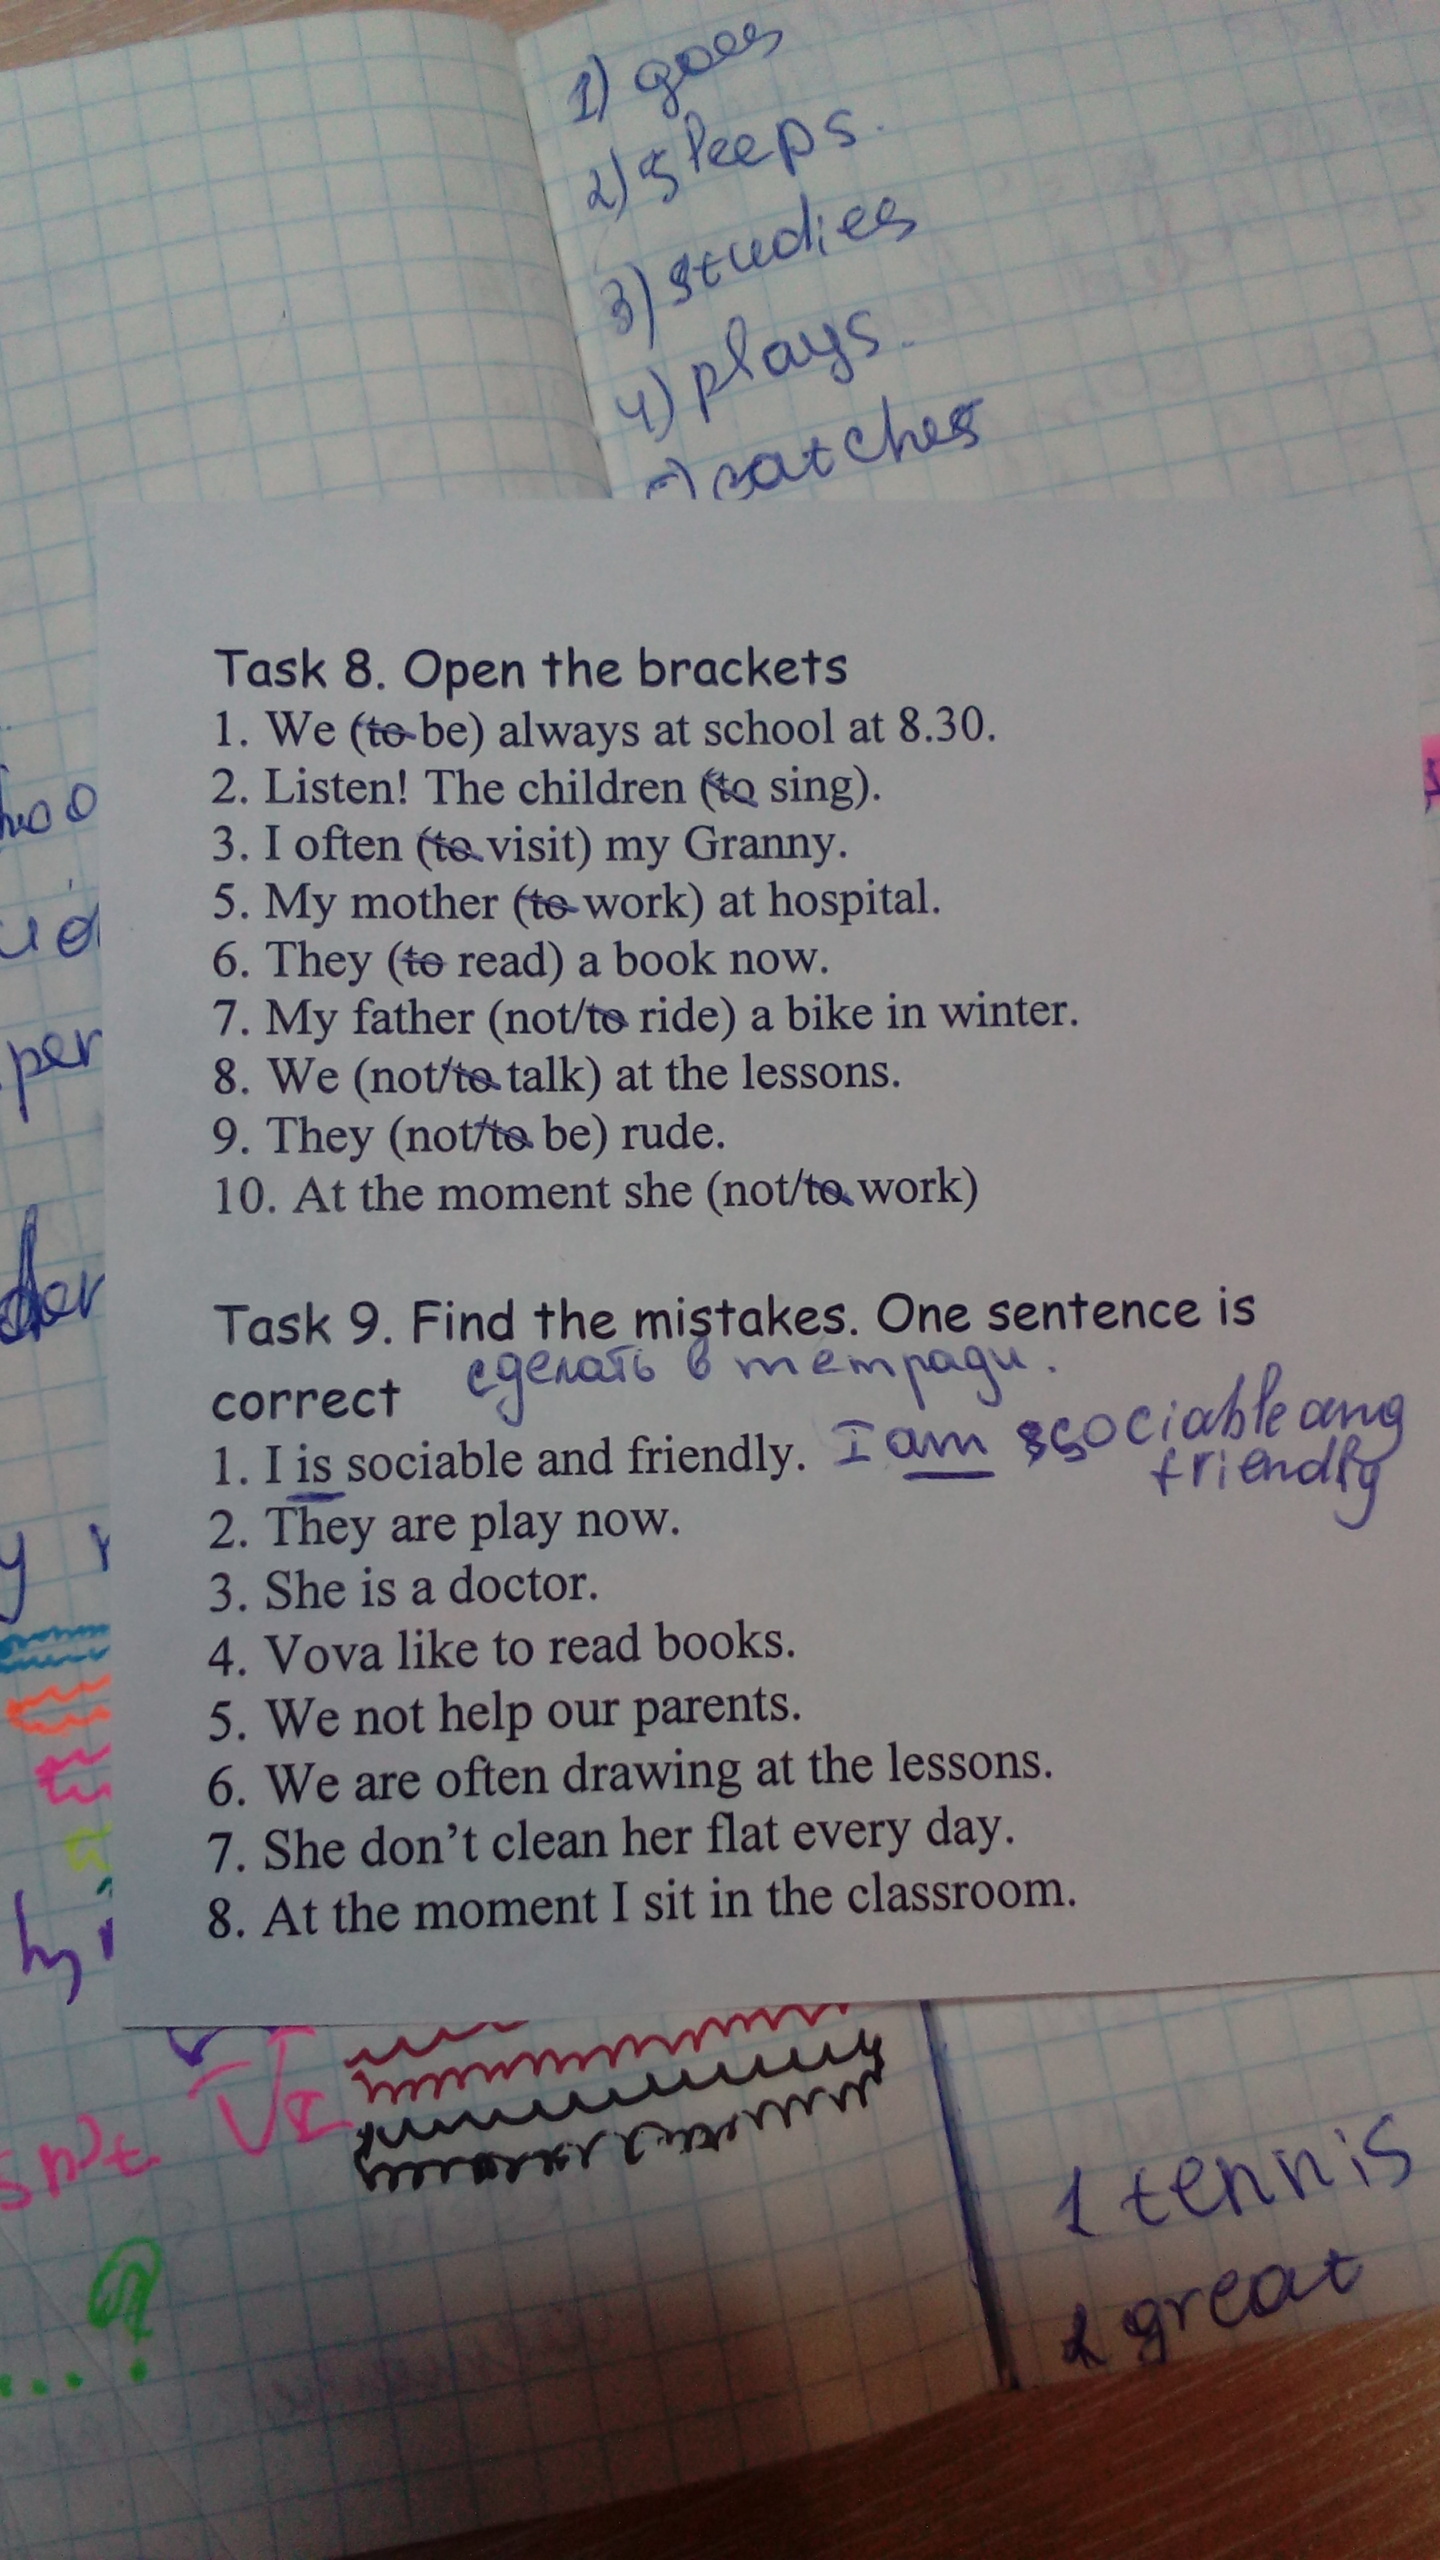 1) goes
2) sleeps.
3) studies
4) plays.
Task 8. Open the brackets
1. We (to be) always at school at 8.30.
2. Listen! The children (to sing).
3. I often (to visit) my Granny.
5. My mother (to work) at hospital.
6. They (to read) a book now.
7. My father (not/to ride) a bike in winter.
8. We (not/to talk) at the lessons.
9. They (not/to be) rude.
10. At the moment she (not/to work)
Task 9. Find the mistakes. One sentence is
correct сделать в тетради.
1. I is sociable and friendly. I am sociable and
friendly
2. They are play now.
3. She is a doctor.
4. Vova like to read books.
5. We not help our parents.
6. We are often drawing at the lessons.
7. She don't clean her flat every day.
8. At the moment I sit in the classroom.
1 tennis
2 great